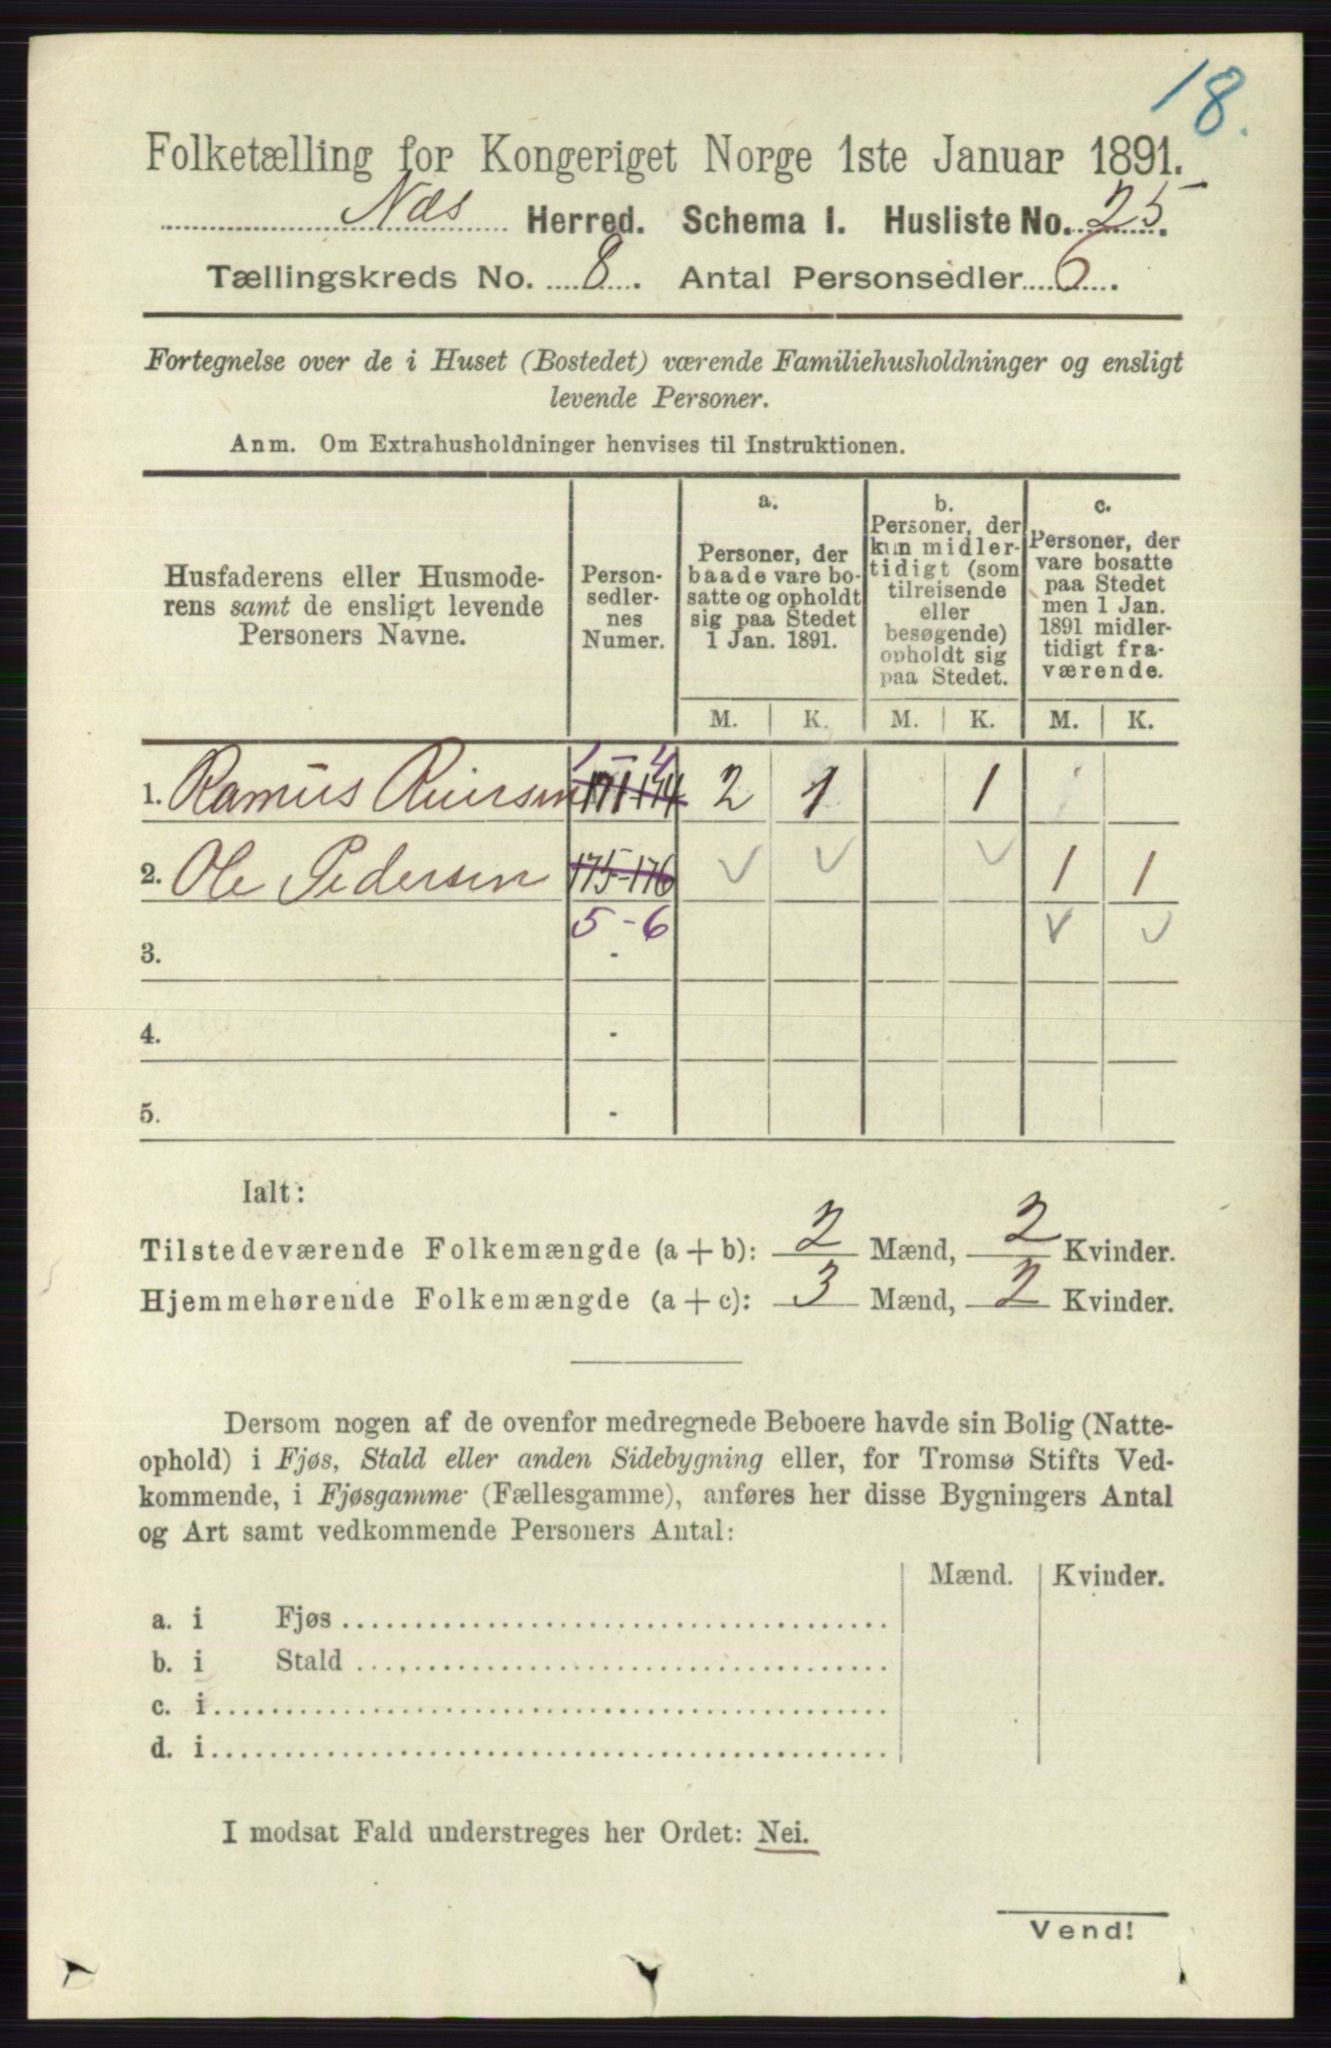 18.
Folketælling for Kongeriget Norge 1ste Januar 1891.
Næs Herred. Schema I. Husliste No. 25.
Tællingskreds No. 8. Antal Personsedler 6.
Fortegnelse over de i Huset (Bostedet) værende Familiehusholdninger og ensligt
levende Personer.
Anm. Om Extrahusholdninger henvises til Instruktionen.
Husfaderens eller Husmode-
rens samt de ensligt levende
Personers Navne.
Person-
sedler-
nes
Numer.
a.
Personer, der
baade vare bo-
satte og opholdt
sig paa Stedet
1 Jan. 1891.
b.
Personer, der
kun midler-
tidigt (som
tilreisende
eller
besøgende)
opholdt sig
paa Stedet.
c.
Personer, der
vare bosatte
paa Stedet
men 1 Jan.
1891 midler-
tidigt fra-
værende.
M. K. M. K. M. K.
1 - 4
1. 171-174 2 1 1
2. Ole Pedersen 175-176 1 1
5-6
3. -
4. -
5. -
Ialt:
Tilstedeværende Folkemængde (a + b): 2 Mænd, 2 Kvinder.
Hjemmehørende Folkemængde (a + c): 3 Mænd, 2 Kvinder.
Dersom nogen af de ovenfor medregnede Beboere havde sin Bolig (Natte-
ophold) i Fjøs, Stald eller anden Sidebygning eller, for Tromsø Stifts Ved-
kommende, i Fjøsgamme (Fællesgamme), anføres her disse Bygningers Antal
og Art samt vedkommende Personers Antal:
Mænd. Kvinder.
a. i Fjøs
b. i Stald
c. i
d. i
I modsat Fald understreges her Ordet: Nei.
Vend!